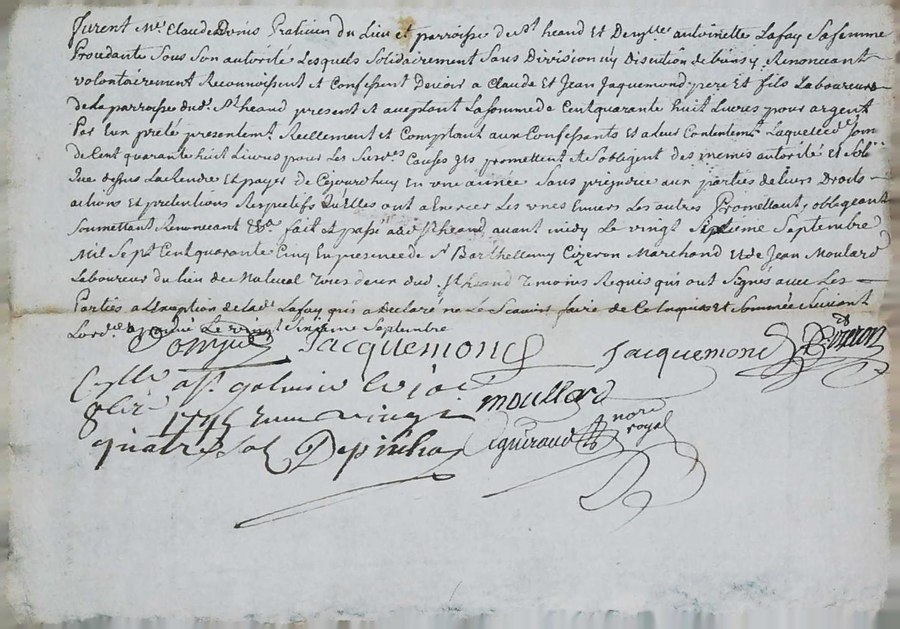 furent Mr. Claude Donis Praticien du Lieu et parroisse de St héand Et Demlle antoinette Lafay Sa femme
Procedante Sous Son autorité Lesquels Solidairement Sans Division ny Discution de biens y Renonceant
volontairement Reconnoissent et Confessent Devoir a Claude Et Jean Jaquemond pere Et fils Laboureurs
de la parroisse dud. St héand present et aceptant La somme de Centquarante huit Livres pour argent
Par Eux prété presentemt Reellement et Comptant aux Confessants Et a leur Contentemt Laquelle de Som
de Cent quarante huit Livres pour Les Susdes Causes ils promettent et Sobligent des memes autorité et
Que dessus La rendre Et payer de Cejourdhuy en une année Sans prejudice aux parties de leurs Droits
actions Et pretentions Respectifs quelles ont a Exercer Les unes Envers Les autres Promettant, obligeant
Soumettant Renonceant &a fait et passé aud. St héand avant midy Le vingt Septieme Septembre
Mil Sept Centquarante Cinq En presence de Sr Barthellemy Cizeron Marchand Et de Jean Moulard
Laboureur du lieu de tous deux dud. St héand Temoins Requis qui ont Signés avec Les
Parties a L'exeption de lade. Lafay qui a Declaré ne Le Scavoir faire de Ce Enquise et Sommée Suivant
Lordce Le vingt Septembre
Jacquemond Jacquemond Cizeron
a St galmier le
1745 vingt moullard
quatre Sol Depinha eguiraud nore royal